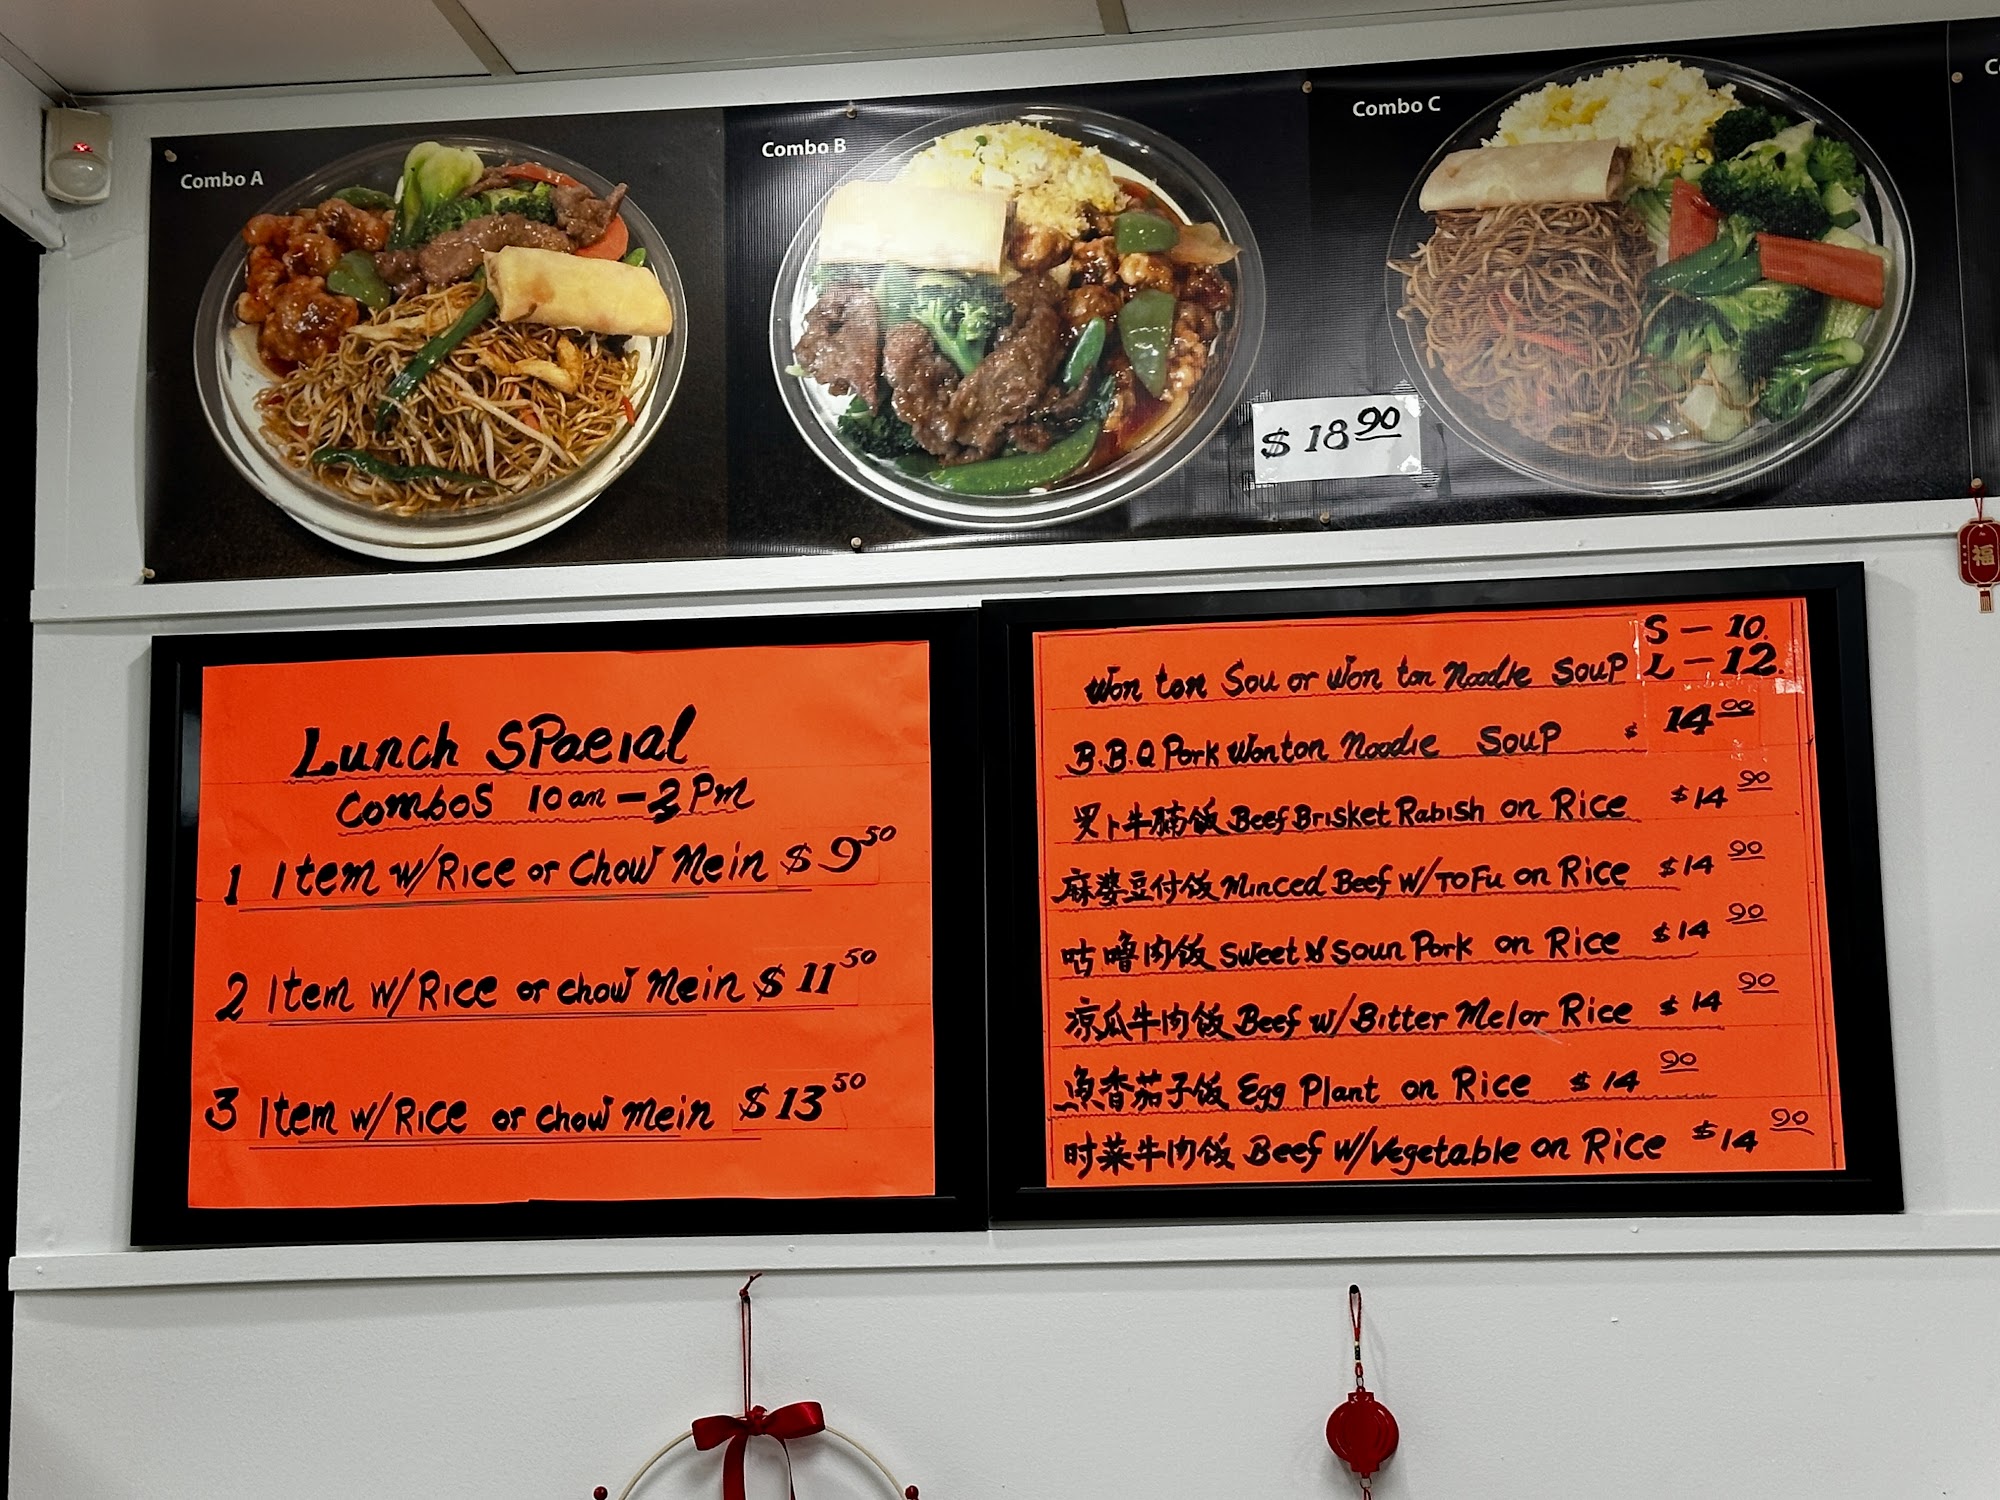 Combo A
Combo B
Combo C
C
$ 18 90
福
Lunch SPaeial
Combos 10am - 2 Pm
1 Item w/Rice or Chow Mein $ 9 50
2 Item w/Rice or chow mein $ 11 50
3 Item w/Rice or chow mein $ 13 50
S - 10.
Won ton Sou or Won ton Noodle SouP L - 12.
B.B.Q Pork Wonton Noodle SouP $ 14 00
罗卜牛腩饭 Beef Brisket Rabish on Rice $14 90
麻婆豆付饭 Minced Beef w/ToFu on Rice $14 90
咕噜肉饭 Sweet & Soun Pork on Rice $14 90
凉瓜牛肉饭 Beef w/Bitter Melor Rice $14 90
魚香茄子饭 Egg Plant on Rice $14 90
时菜牛肉饭 Beef w/Vegetable on Rice $14 90